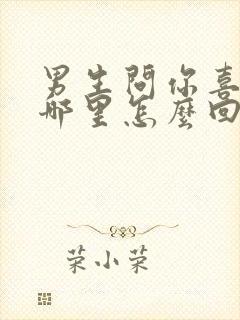 男生問你喜
哪里怎麼回
荣小荣